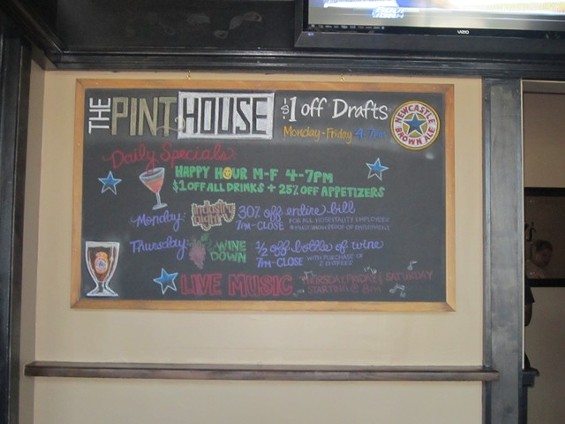 VIZIO
THE PINT HOUSE
$1 off Drafts
Monday-Friday 4-7pm
NEWCASTLE
BROWN ALE
Daily Specials
HAPPY HOUR M-F 4-7PM
$1 OFF ALL DRINKS + 25% OFF APPETIZERS
Monday: industry night 30% off entire bill
7PM-CLOSE FOR ALL HOSPITALITY EMPLOYEES
Thursday: WINE DOWN 1/2 off bottle of wine
7PM-CLOSE WITH PURCHASE OF 2 ENTREES
LIVE MUSIC THURSDAY, FRIDAY & SATURDAY
STARTING @ 8PM